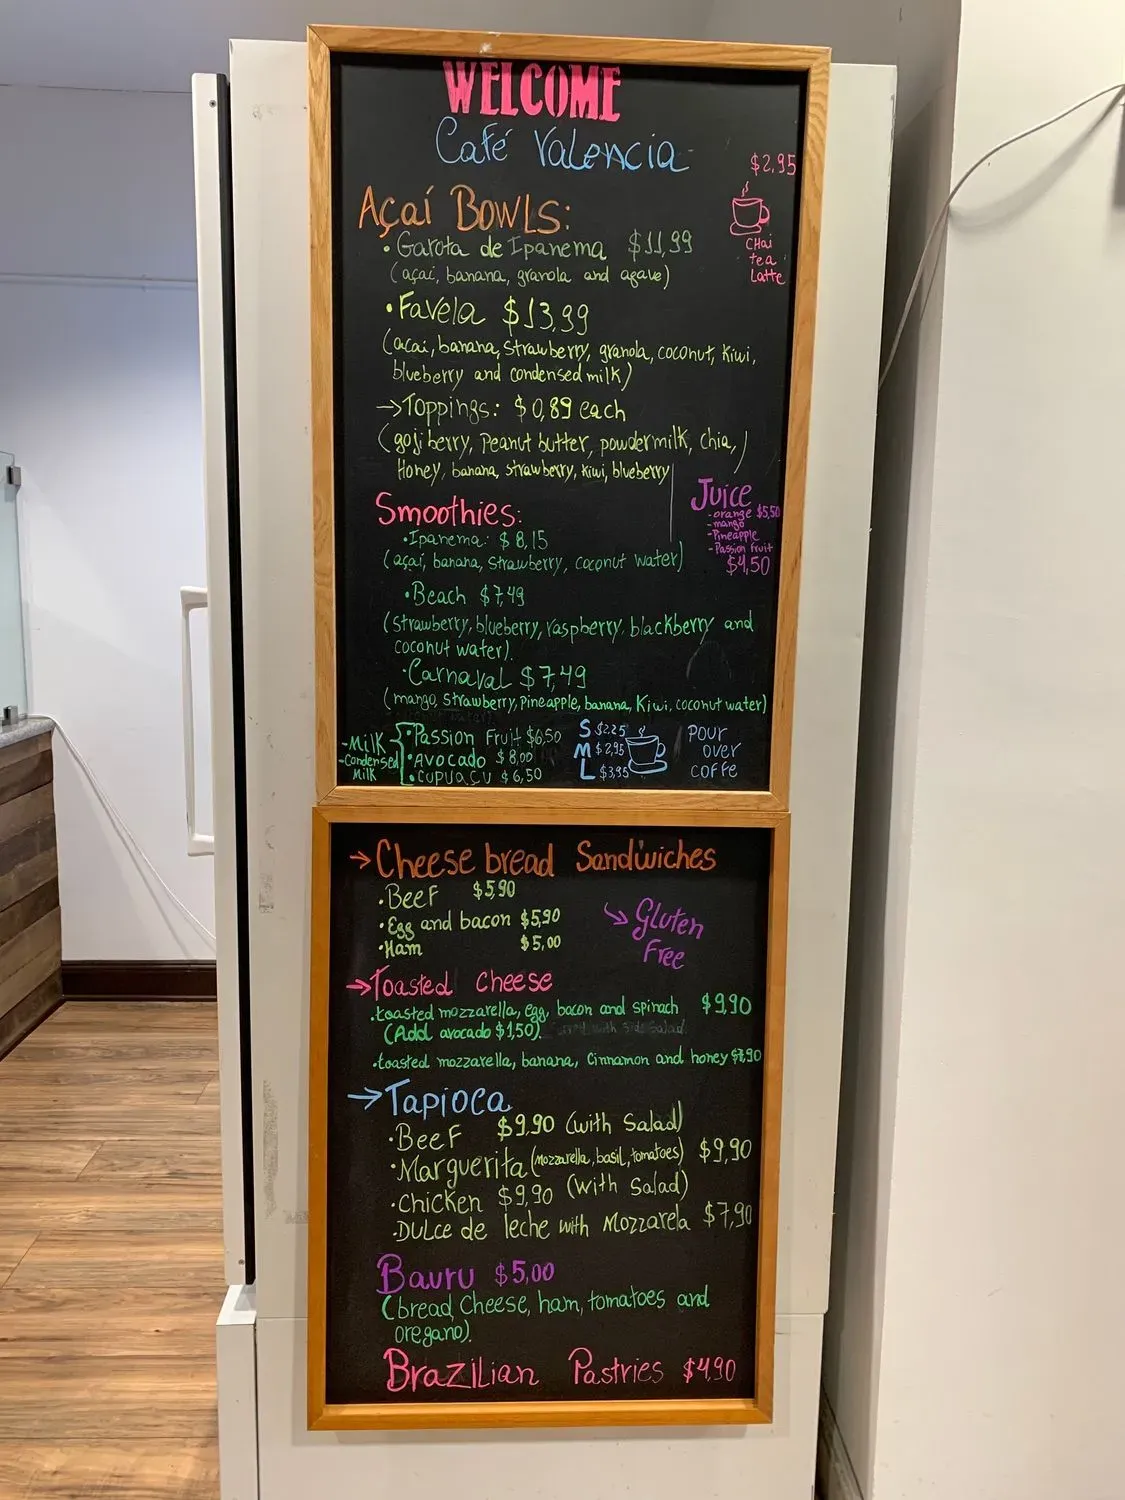 WELCOME
Café Valencia
$2,95
CHai
tea
Latte
Açaí BOWLS:
•Garota de Ipanema $11,99
(açaí, banana, granola and agave)
•Favela $13,99
(acai, banana, strawberry, granola, coconut, kiwi,
blueberry and condensed milk)
→Toppings: $0,89 each
(goji berry, Peanut butter, powder milk, chia,)
Honey, banana, strawberry, kiwi, blueberry
Juice
-orange $5,50
-mango
-Pineapple
-Passion fruit
$4,50
Smoothies:
•Ipanema: $8,15
(açaí, banana, strawberry, coconut water)
•Beach $7,49
(strawberry, blueberry, raspberry, blackberry and
coconut water).
•Carnaval $7,49
(mango, strawberry, pineapple, banana, Kiwi, coconut water)
-Milk
-condensed
Milk
•Passion Fruit $6,50
•Avocado $8,00
•cupuaçu $6,50
S $2,25
M $2,95
L $3,95
Pour
over
coffe
→Cheese bread Sandwiches
•Beef $5,90
•Egg and bacon $5,90
•Ham $5,00
Gluten
Free
→Toasted cheese
•toasted mozzarella, egg, bacon and spinach $9,90
(Add avocado $1,50).
•toasted mozzarella, banana, cinnamon and honey
→Tapioca
•Beef $9,90 (with Salad)
•Marguerita (mozzarella, basil, tomatoes) $9,90
•Chicken $9,90 (with Salad)
•Dulce de leche with Mozzarela $7,90
Bauru $5,00
(bread, cheese, ham, tomatoes and
oregano).
Brazilian Pastries $4,90